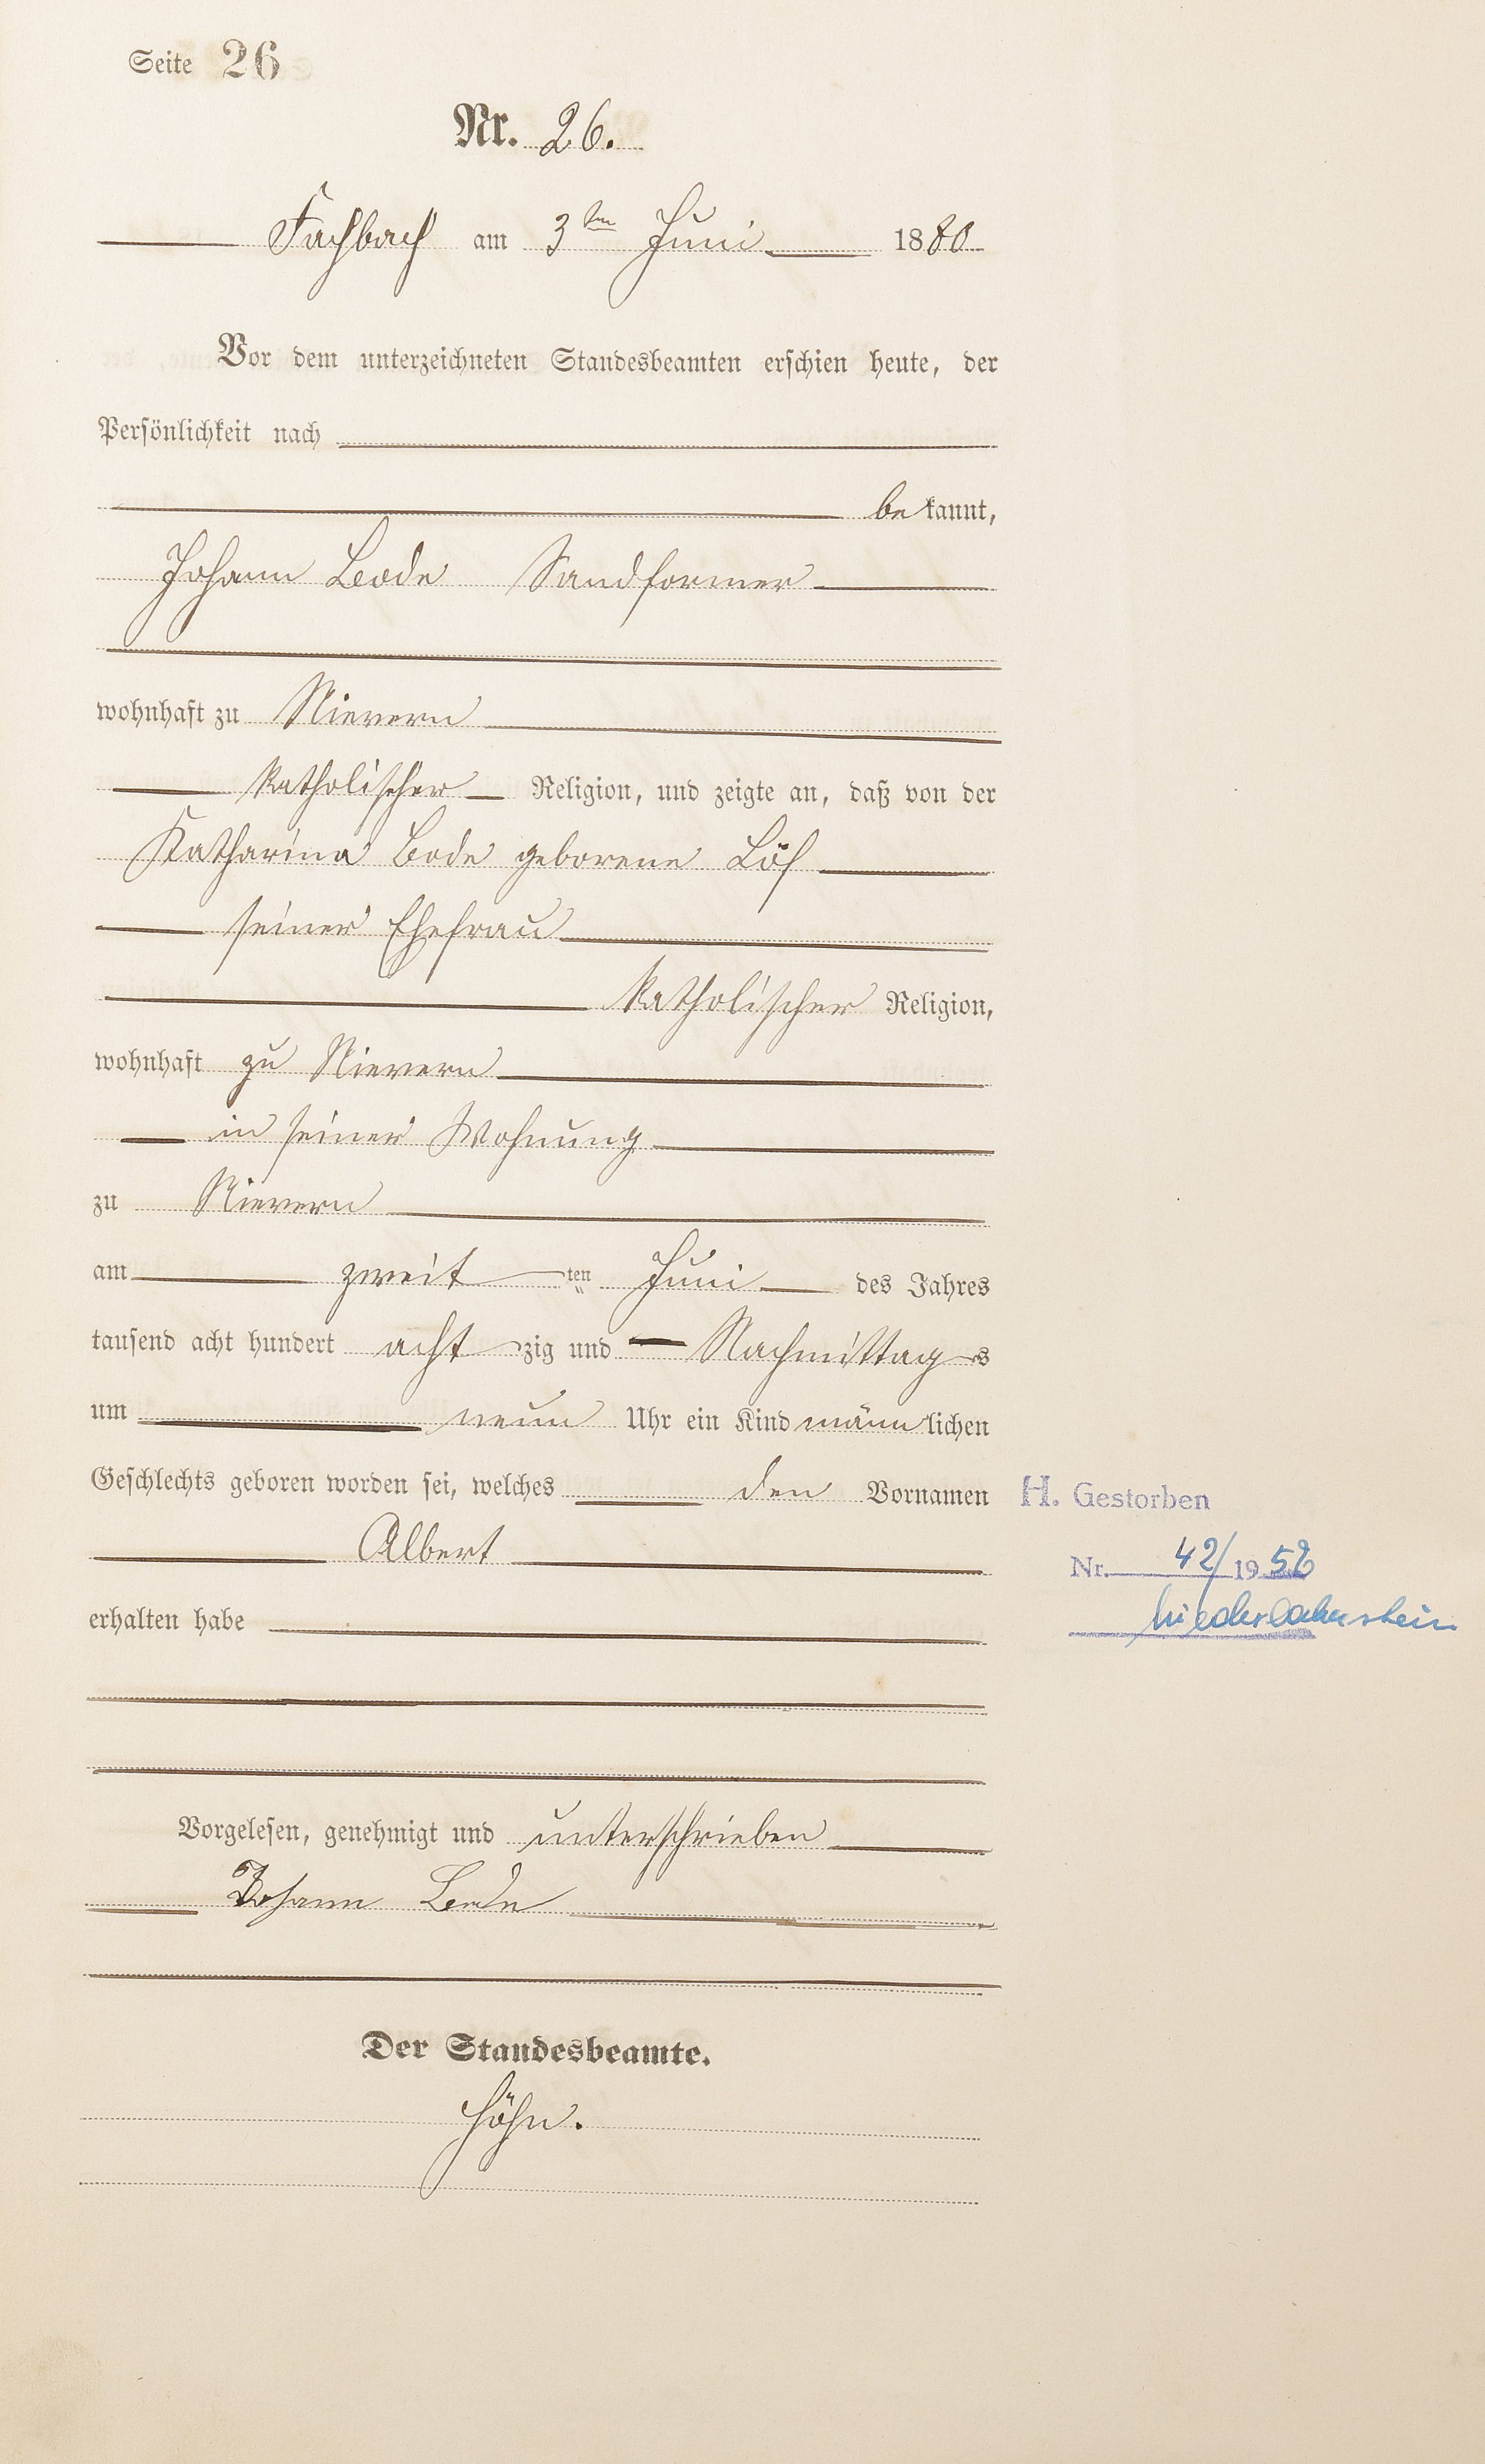 Seite 26
Nr. 26.
Fachbach am 3ten Juni 1880
Vor dem unterzeichneten Standesbeamten erschien heute, der
Persönlichkeit nach
bekannt,
Johann Bode Sandformer
wohnhaft zu Nievern
katholischer Religion, und zeigte an, daß von der
Katharina Bode geborene Löf
seiner Ehefrau
katholischer Religion,
wohnhaft zu Nievern
in seiner Wohnung
zu Nievern
am zweit ten Juni des Jahres
tausend acht hundert achtzig und Nachmittags
um neun Uhr ein Kind männlichen
Geschlechts geboren worden sei, welches den Vornamen
H. Gestorben
Albert
Nr. 42/1952
erhalten habe
Niederlahnstein
Vorgelesen, genehmigt und unterschrieben
Johann Bode
Der Standesbeamte.
Höhn.